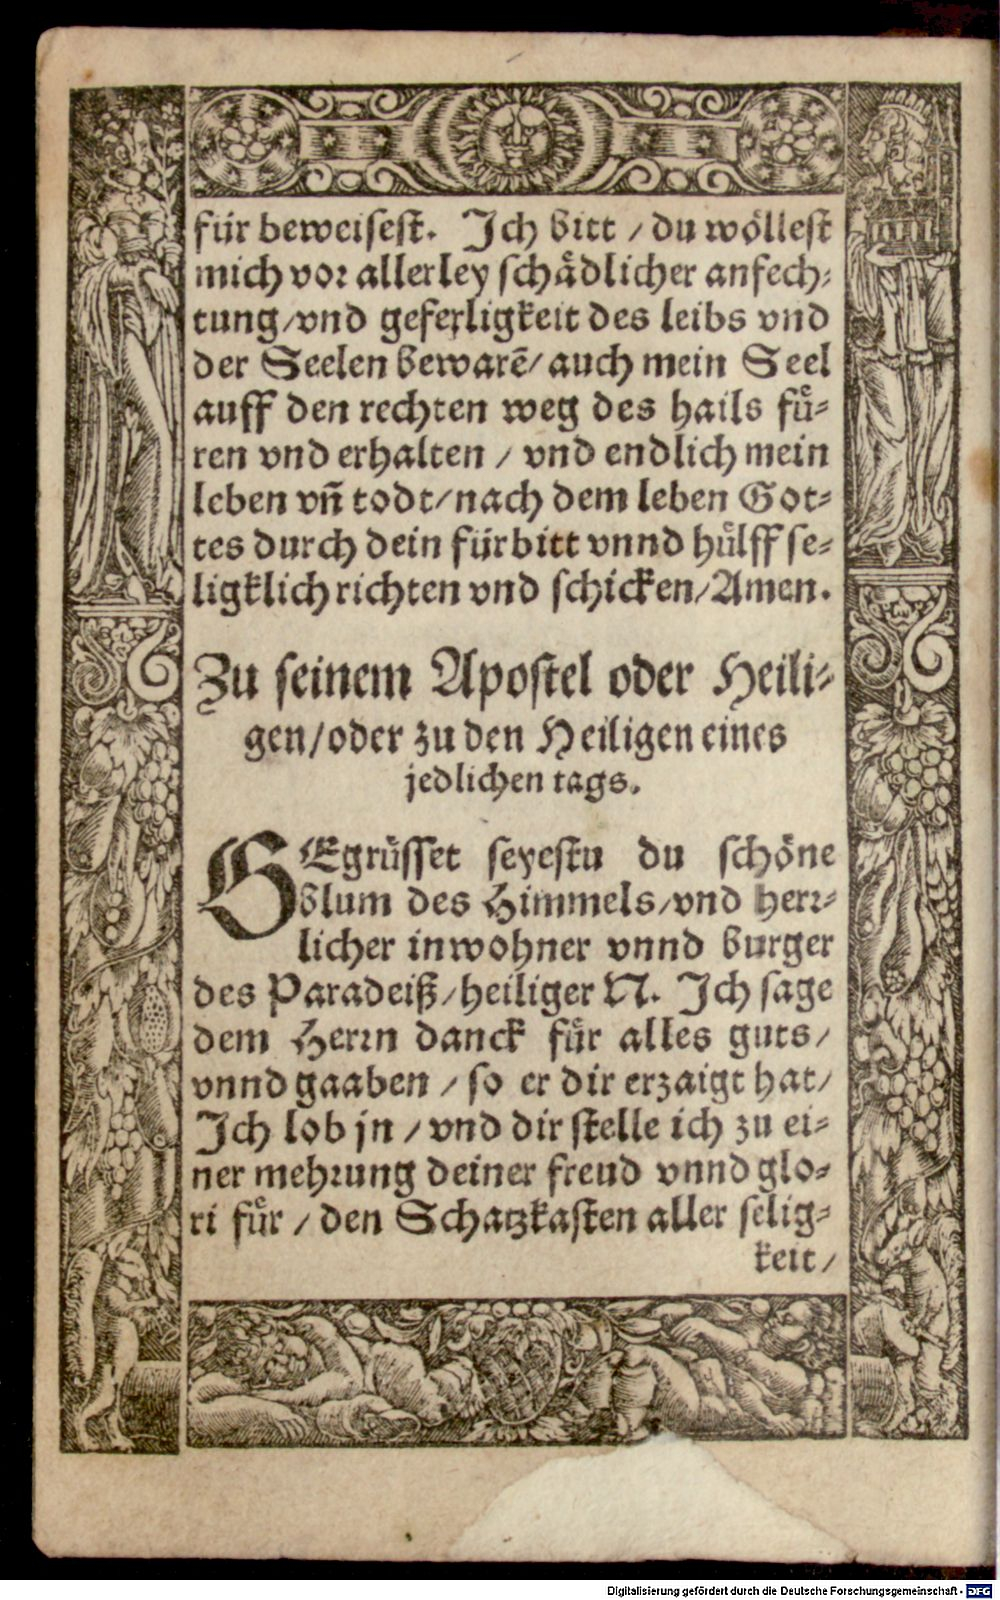 für beweisest. Ich bitt / du wöllest
mich vor allerley schädlicher anfech-
tung/vnd geferligkeit des leibs vnd
der Seelen bewarē/ auch mein Seel
auff den rechten weg des hails fü-
ren vnd erhalten / vnd endlich mein
leben vñ todt/nach dem leben Got-
tes durch dein fürbitt vnnd hülff se-
ligklich richten vnd schicken/Amen.
Zu seinem Apostel oder Heili-
gen/oder zu den Heiligen eines
jedlichen tags.
GEgrüsset seyestu du schöne
Blum des Himmels/vnd herr-
licher inwohner vnnd burger
des Paradeiß/heiliger N. Ich sage
dem Herrn danck für alles guts/
vnnd gaaben / so er dir erzaigt hat/
Ich lob jn / vnd dir stelle ich zu ei-
ner mehrung deiner freud vnnd glo-
ri für / den Schatzkasten aller selig-
keit/
Digitalisierung gefördert durch die Deutsche Forschungsgemeinschaft - DFG